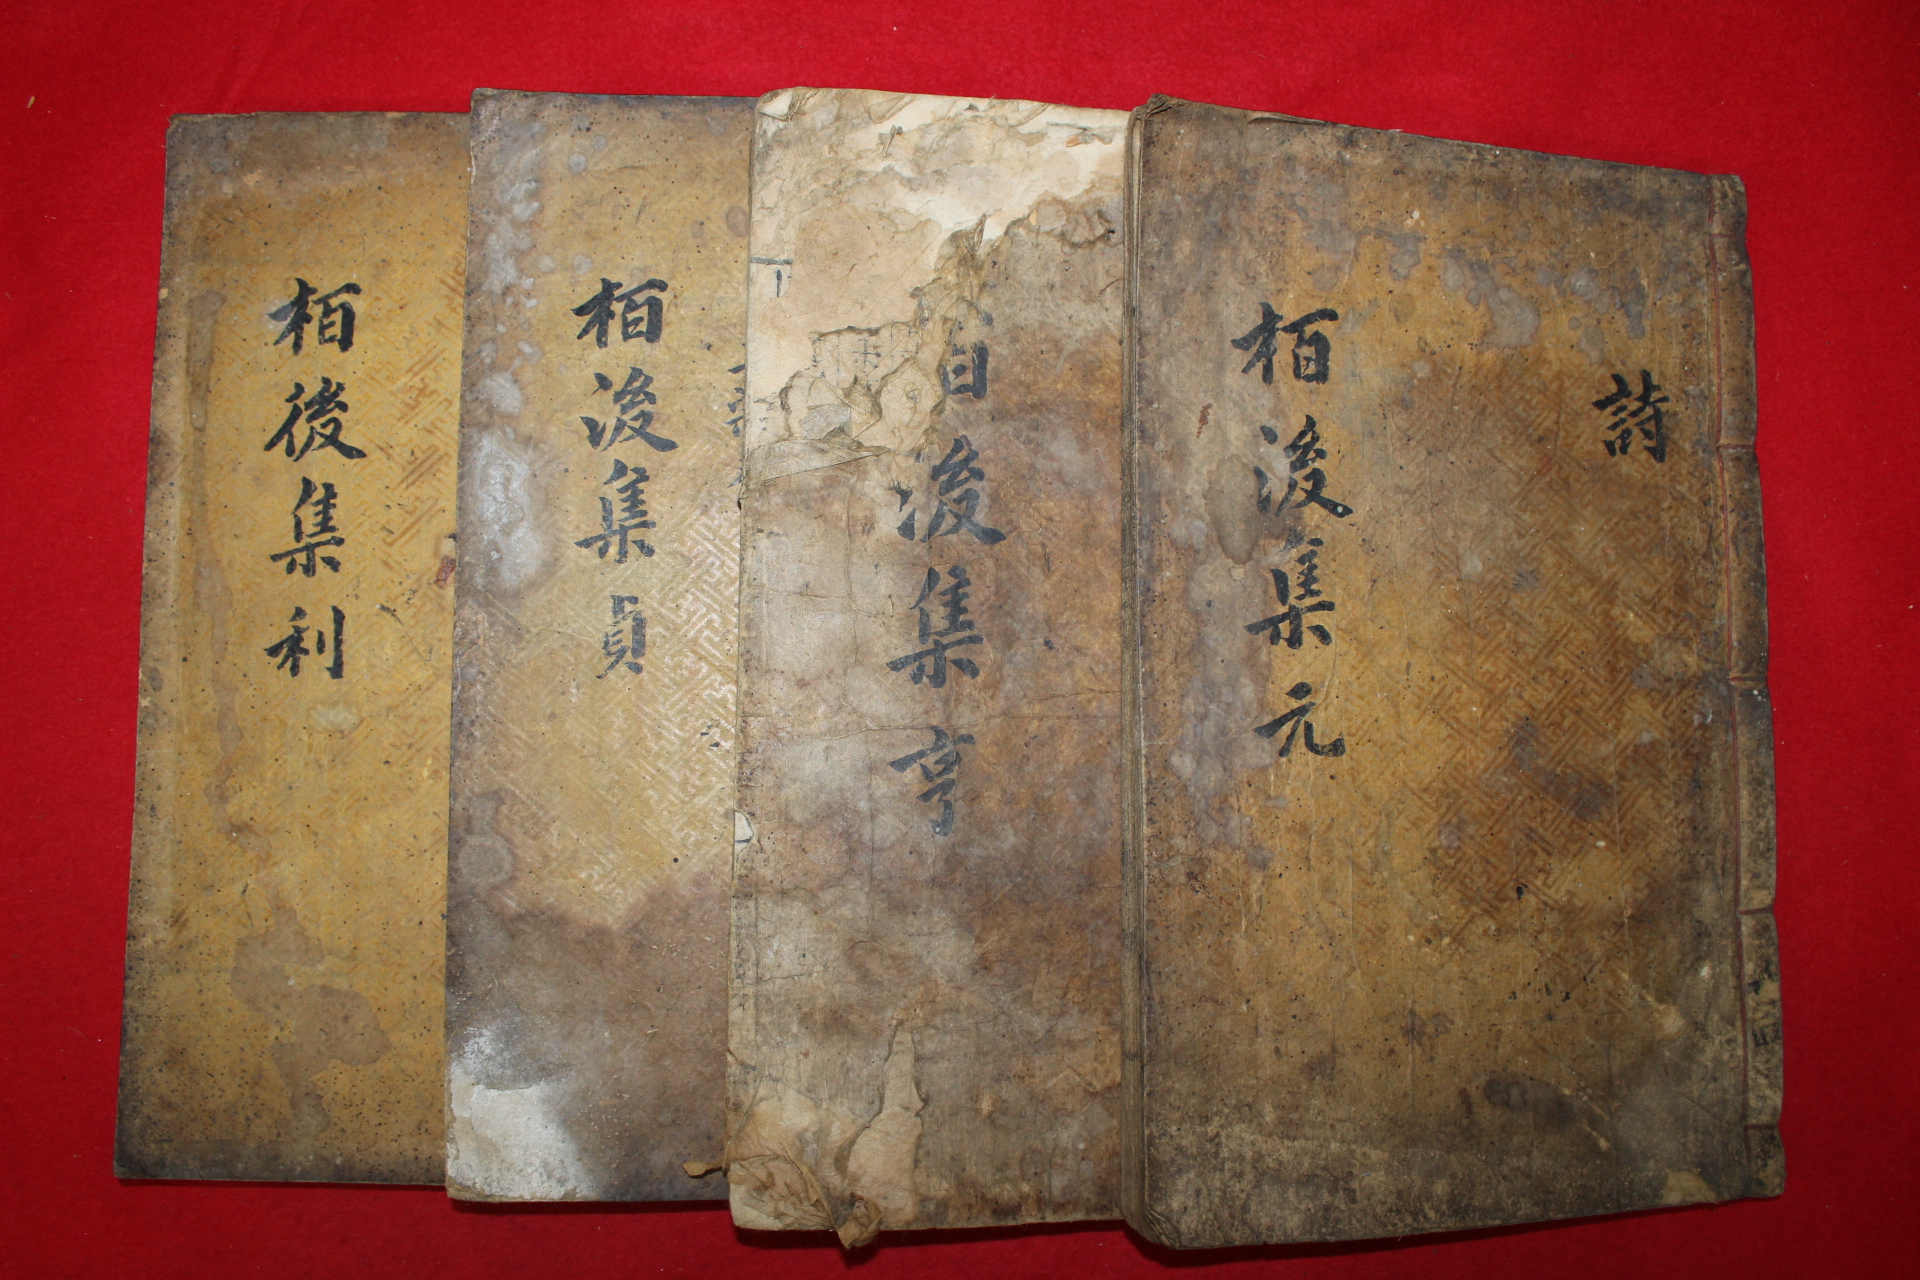 詩
栢後集元
後集亨
栢後集貞
栢後集利